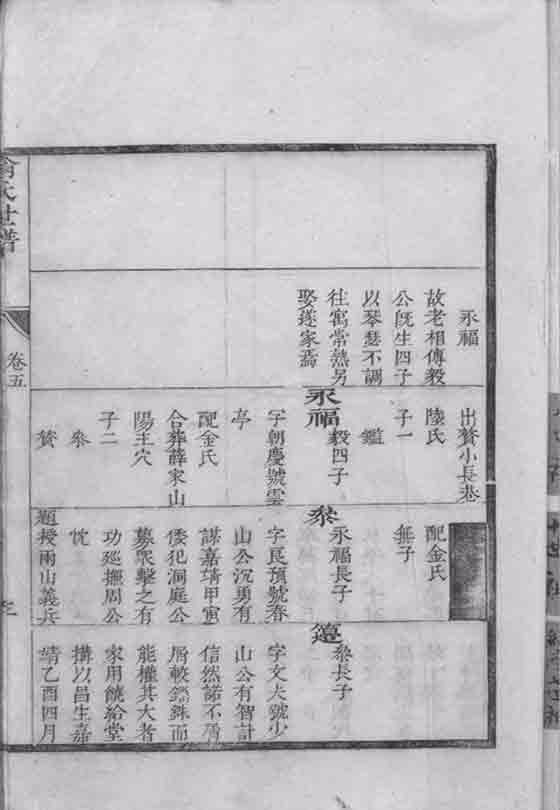 永福
故老相傳毅
公旣生四子
以琴瑟不調
往寓常熟另
娶遂家焉
出贅小長巷
陸氏
子一
鑑
永福
毅四子
字朝慶號雲
亭
配金氏
合葬薛家山
陽主穴
子二
叅
贊
配金氏
無子
叅
永福長子
字民預號春
山公沉勇有
謀嘉靖甲寅
倭犯洞庭公
募衆擊之有
功廵撫周公
忱
題授兩山義兵
叅長子
字文夫號少
山公有智計
信然諾不屑
屑較錙銖而
能權其大者
家用饒給堂
搆以昌生嘉
靖乙酉四月
氏世譜
卷五